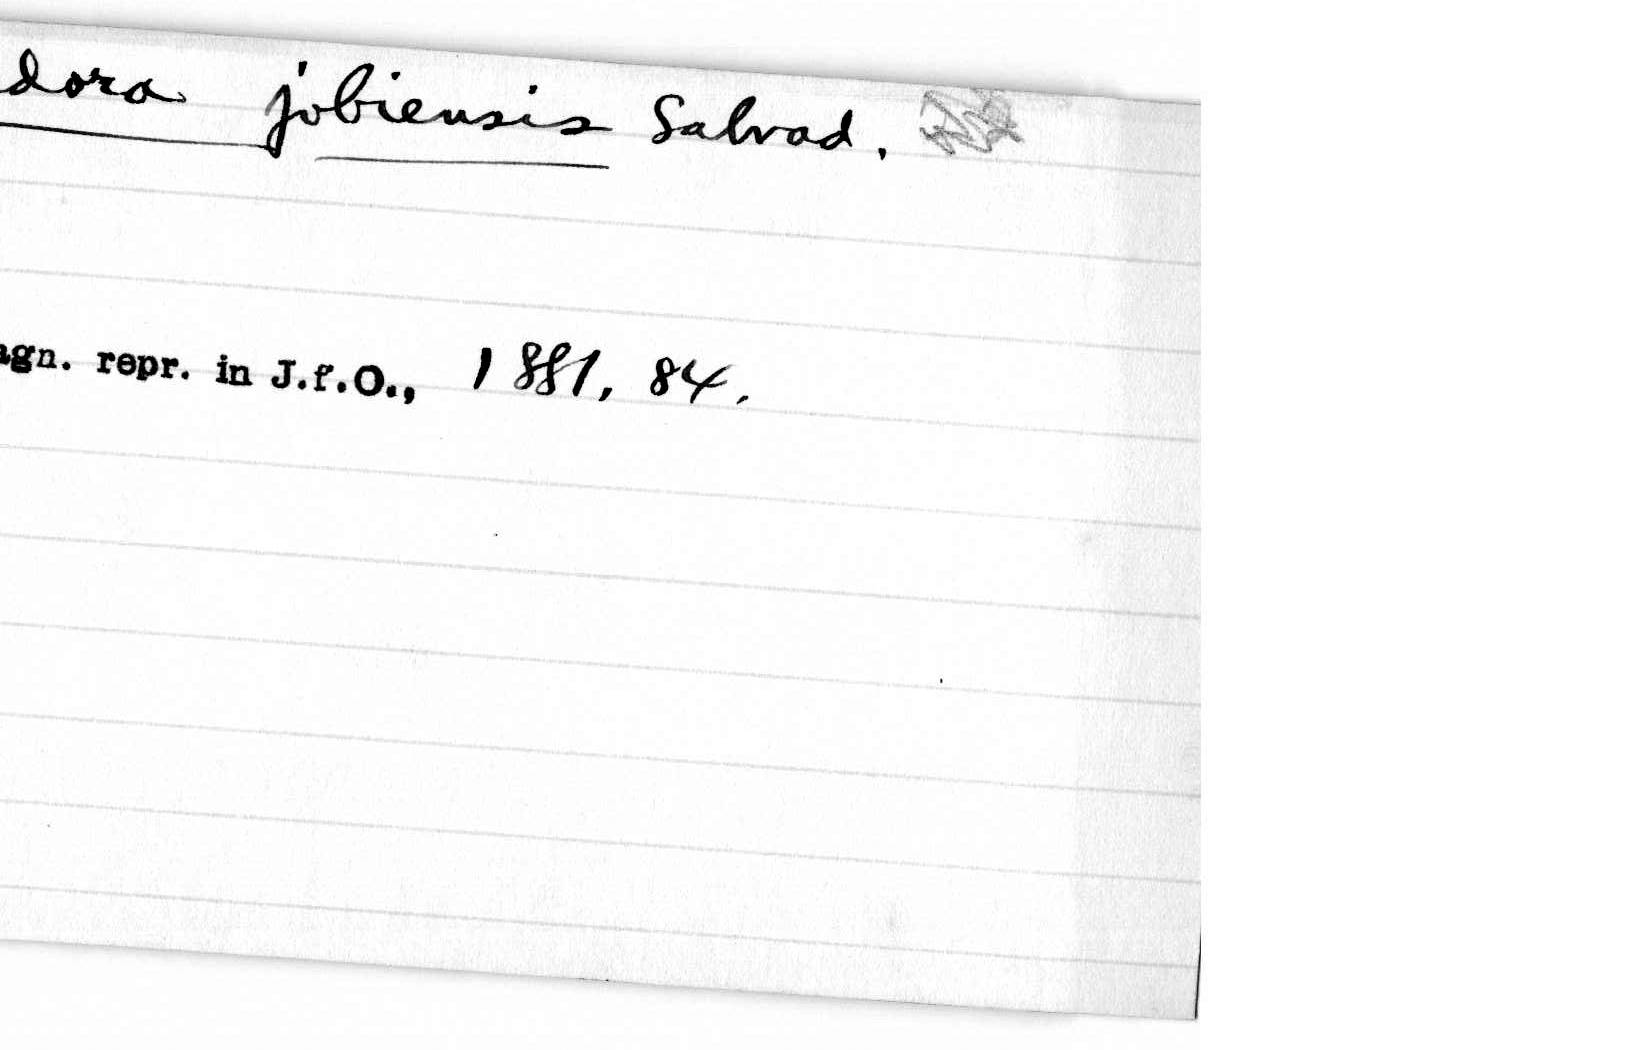 dora jobiensis Salvad.
agn. repr. in J.f.O., 1881, 84.